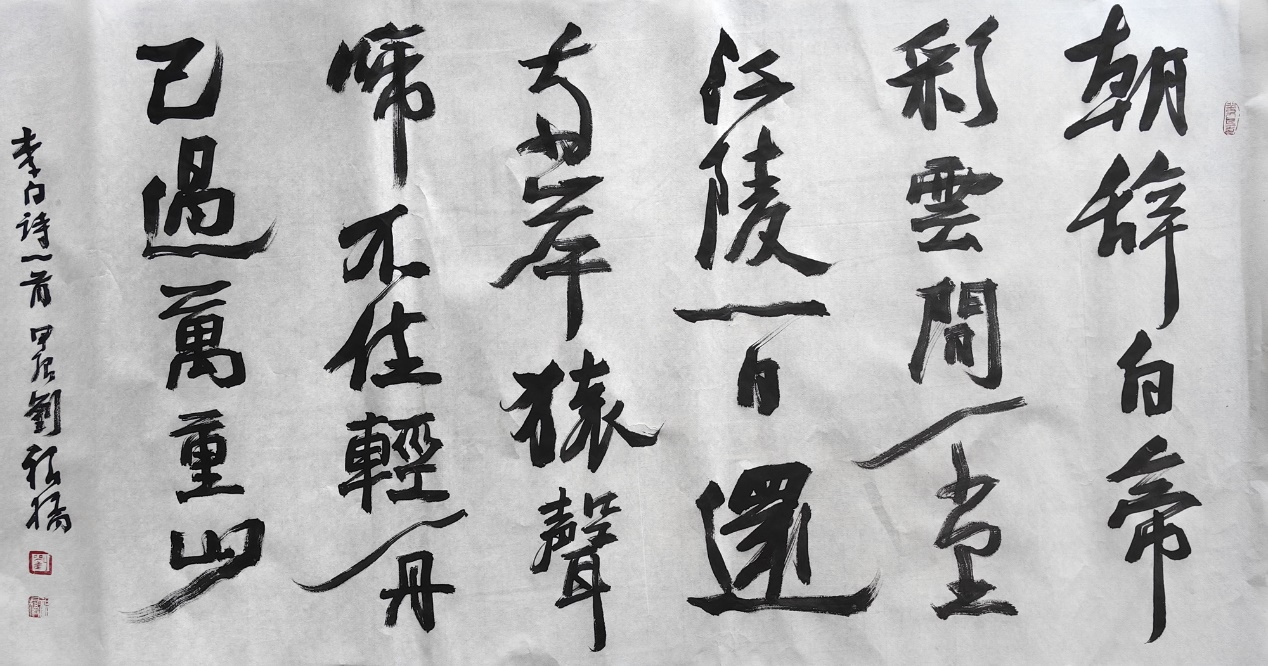 朝辞白帝
彩雲間千里
江陵一日還
两岸猿聲
啼不住輕舟
已過萬重山
李白詩一首 甲辰 劉